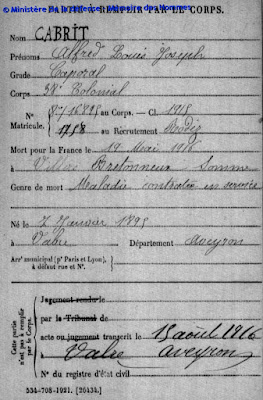 © Ministère de la Défense - Mémoire des Hommes
PARTIE À REMPLIR PAR LE CORPS.
Nom CABRIT
Prénoms Alfred Louis Joseph
Grade Caporal
Corps 38e Colonial
N° au Corps. — Cl. 1915
Matricule. 1758 au Recrutement Rodez
Mort pour la France le 19 Mai 1916
à Villers Bretonneux Somme
Genre de mort Maladie contractée en service
Né le 7 Janvier 1895
à Vabre Département Aveyron
Arrt municipal (pr Paris et Lyon),
à défaut rue et N°.
Cette partie
n'est pas à remplir
par le Corps.
Jugement rendu le
par le Tribunal de
acte ou jugement transcrit le 15 août 1916
à Vabre Aveyron
N° du registre d'état civil
534-708-1921. [26434.]